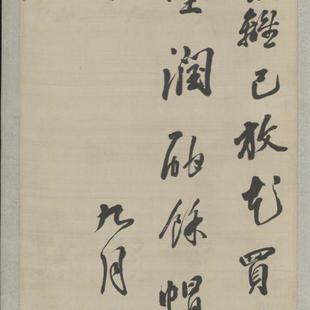 已放花買
潤酣餘帽
九月